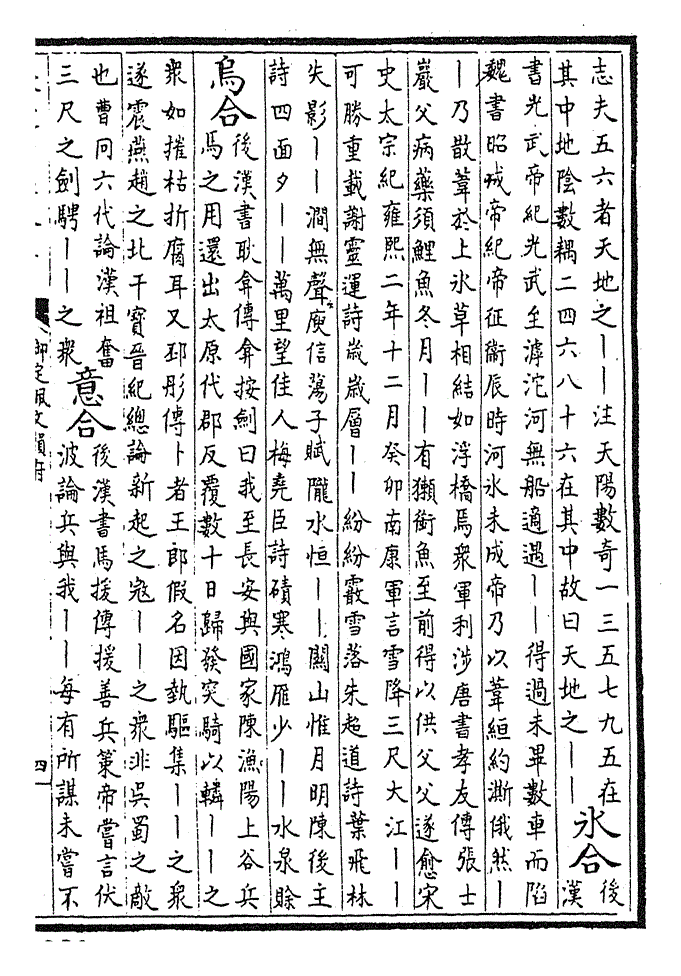 志夫五六者天地之丨丨注天陽數奇一三五七九五在
其中地陰數耦二四六八十六在其中故曰天地之丨丨
氷合
後
漢
書光武帝紀光武至滹沱河無船適遇丨丨得過未畢數車而陷
魏書昭成帝紀帝征衞辰時河氷未成帝乃以葦絙約澌俄然丨
丨乃散葦於上氷草相結如浮橋焉衆軍利涉唐書孝友傳張士
巖父病藥須鯉魚冬月丨丨有獺銜魚至前得以供父父遂愈宋
史太宗紀雍熙二年十二月癸卯南康軍言雪降三尺大江丨丨
可勝重載謝靈運詩歲歲層丨丨紛紛霰雪落朱超道詩葉飛林
失影丨丨澗無聲庾信蕩子賦隴水恒丨丨關山惟月明陳後主
詩四面夕丨丨萬里望佳人梅堯臣詩磧寒鴻雁少丨丨水泉賒
烏合
後漢書耿弇傳弇按劍曰我至長安與國家陳漁陽上谷兵
馬之用還出太原代郡反覆數十日歸發突騎以轔丨丨之
衆如摧枯折腐耳又邳彤傳卜者王郎假名因埶驅集丨丨之衆
遂震燕趙之北干寶晉紀總論新起之寇丨丨之衆非吳蜀之敵
也曹冏六代論漢祖奮
三尺之劍騁丨丨之衆
意合
後漢書馬援傳援善兵策帝嘗言伏
波論兵與我丨丨每有所謀未嘗不
御定佩文韻府
四